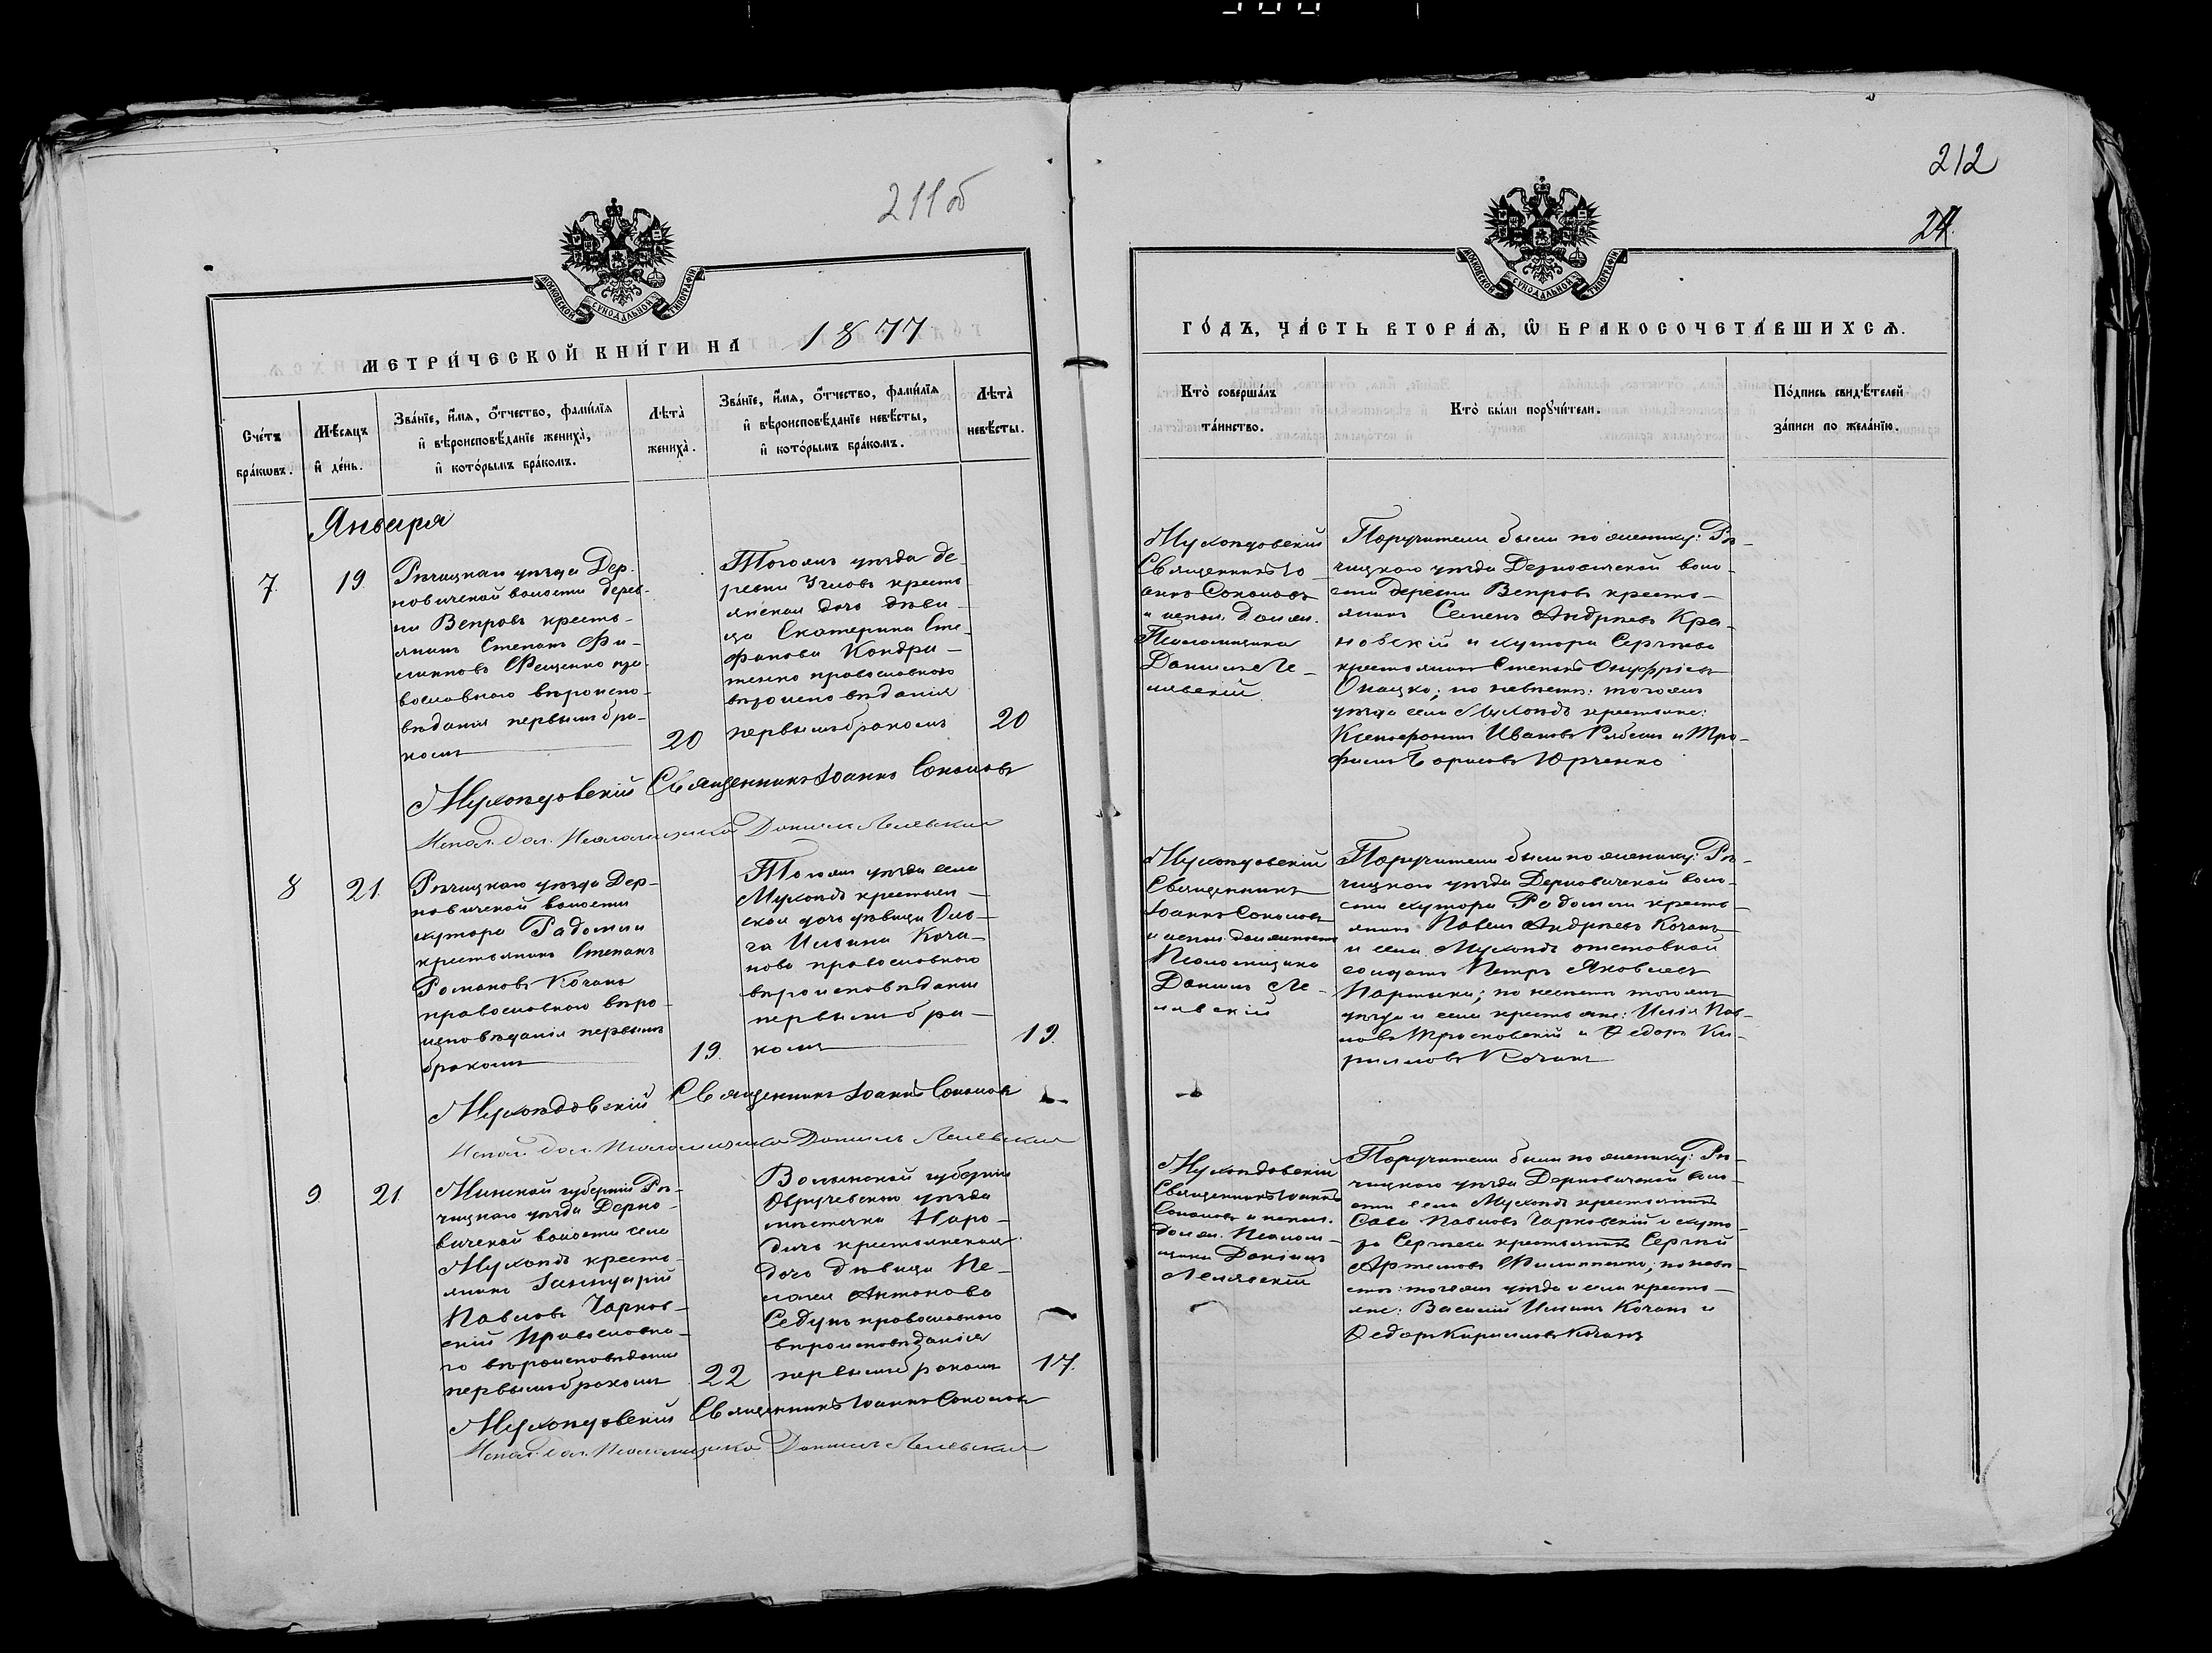 211об
212
24.
МОСКОВСКОЙ СѴНОДАЛЬНОЙ ТИПОГРАФІИ
МЕТРИ́ЧЕСКОЙ КНИ́ГИ НА 1877
Сче́тъ бра́кѡвъ.
Мѣ́сяцъ и҆ де́нь.
Зва́нїе, и҆́мя, ѻ҆́тчество, фами́лїя
и҆ вѣроисповѣ́данїе жениха̀,
и҆ кото́рымъ бра́комъ.
Лѣта̀ жениха̀.
Зва́нїе, и҆́мя, ѻ҆́тчество, фами́лїя
и҆ вѣроисповѣ́данїе невѣ́сты,
и҆ кото́рымъ бра́комъ.
Лѣта̀ невѣ́сты.
Января
7.
19
Рѣчицкаго уѣзда Дер-
новичской волости дерев-
ни Вепровъ кресть-
янинъ Степанъ Фи-
липповъ Фещенко пра-
вославнаго вѣроиспо-
вѣданія первымъ бра-
комъ
20
Тогожъ уѣзда де-
ревни Угловъ кресть-
янская дочь дѣви-
ца Екатерина Сте-
фанова Кондра-
тенко православнаго
вѣроисповѣданія
первымъ бракомъ
20
Мухоѣдовскій Священникъ Іоаннъ Соколовъ
Испол. дол. Псаломщика Даніилъ Лелявскій
8
21.
Рѣчицкаго уѣзда Дер-
новичской волости
хутора Радомли
крестьянинъ Степанъ
Романовъ Кочанъ
православнаго вѣро-
исповѣданія первымъ
бракомъ
19.
Тогожъ уѣзда села
Мухоѣдъ крестьян-
ская дочь дѣвица Оль-
га Ильина Коча-
нова православнаго
вѣроисповѣданія
первымъ бра-
комъ
19.
Мухоѣдовскій Священникъ Іоаннъ Соколовъ
Испол. дол. Псаломщика Даніилъ Лелявскій
9.
21.
Минской губерніи Рѣ-
чицкаго уѣзда Дерно-
вичской волости села
Мухоѣдъ кресть-
янинъ Іаннуарій
Павловъ Чарнов-
скій Православна-
го вѣроисповѣданія
первымъ бракомъ
22
Волынской губерніи
Овручевскаго уѣзда
мѣстечка Наро-
дичъ крестьянская
дочь дѣвица Пе-
лагея Антонова
Седунъ православнаго
вѣроисповѣданія
первымъ бракомъ
17.
Мухоѣдовскій Священникъ Іоаннъ Соколовъ
Испол. дол. Псаломщика Даніилъ Лелявскій
МОСКОВСКОЙ СѴНОДАЛЬНОЙ ТИПОГРАФІИ
ГО́ДЪ, ЧА́СТЬ ВТОРА́Ѧ, Ѽ БРАКОСОЧЕТА́ВШИХСѦ.
Кто̀ соверша́лъ
та́инство.
Кто̀ бы́ли поручи́тели.
По́дпись свидѣ́телей
за́писи по жела́нїю.
Мухоѣдовскій
Священникъ Іо-
аннъ Соколовъ
и испол. долж.
Псаломщика
Даніилъ Ле-
лявскій
Поручители были по жениху: Рѣ-
чицкаго уѣзда Дерновичской воло-
сти деревни Вепровъ кресть-
янинъ Семенъ Андреевъ Кра-
новскій и хутора Сергѣева
крестьянинъ Степанъ Онуфріевъ
Онацко; по невѣстѣ: тогожъ
уѣзда села Мухоѣдъ крестьяне:
Ксенофонтъ Ивановъ Рябецъ и Тро-
фимъ Борисовъ Юрченко
Мухоѣдовскій
Священникъ
Іоаннъ Соколовъ
и испол. должность
Псаломщика
Даніилъ Ле-
лявскій
Поручители были по жениху: Рѣ-
чицкаго уѣзда Дерновичской воло-
сти хутора Радомли кресть-
янинъ Павелъ Андреевъ Кочанъ
и села Мухоѣдъ отставной
солдатъ Петръ Яковлевъ
; по невѣстѣ тогожъ
уѣзда и села крестьяне: Илія Пав-
ловъ и Ѳедоръ Ки-
рилловъ Кочанъ
Мухоѣдовскій
Священникъ Іоаннъ
Соколовъ и испол.
долж. Псалом-
щика Даніилъ
Лелявскій
Поручители были по жениху: Рѣ-
чицкаго уѣзда Дерновичской воло-
сти села Мухоѣдъ крестьянинъ
Сава Павловъ Чарновскій и хуто-
ра Сергѣева крестьянинъ Сергѣй
Артемовъ Филипенко; по невѣ-
стѣ: тогожъ уѣзда и села кресть-
яне: Василій Ильинъ Кочанъ и
Ѳедоръ Кирилловъ Кочанъ